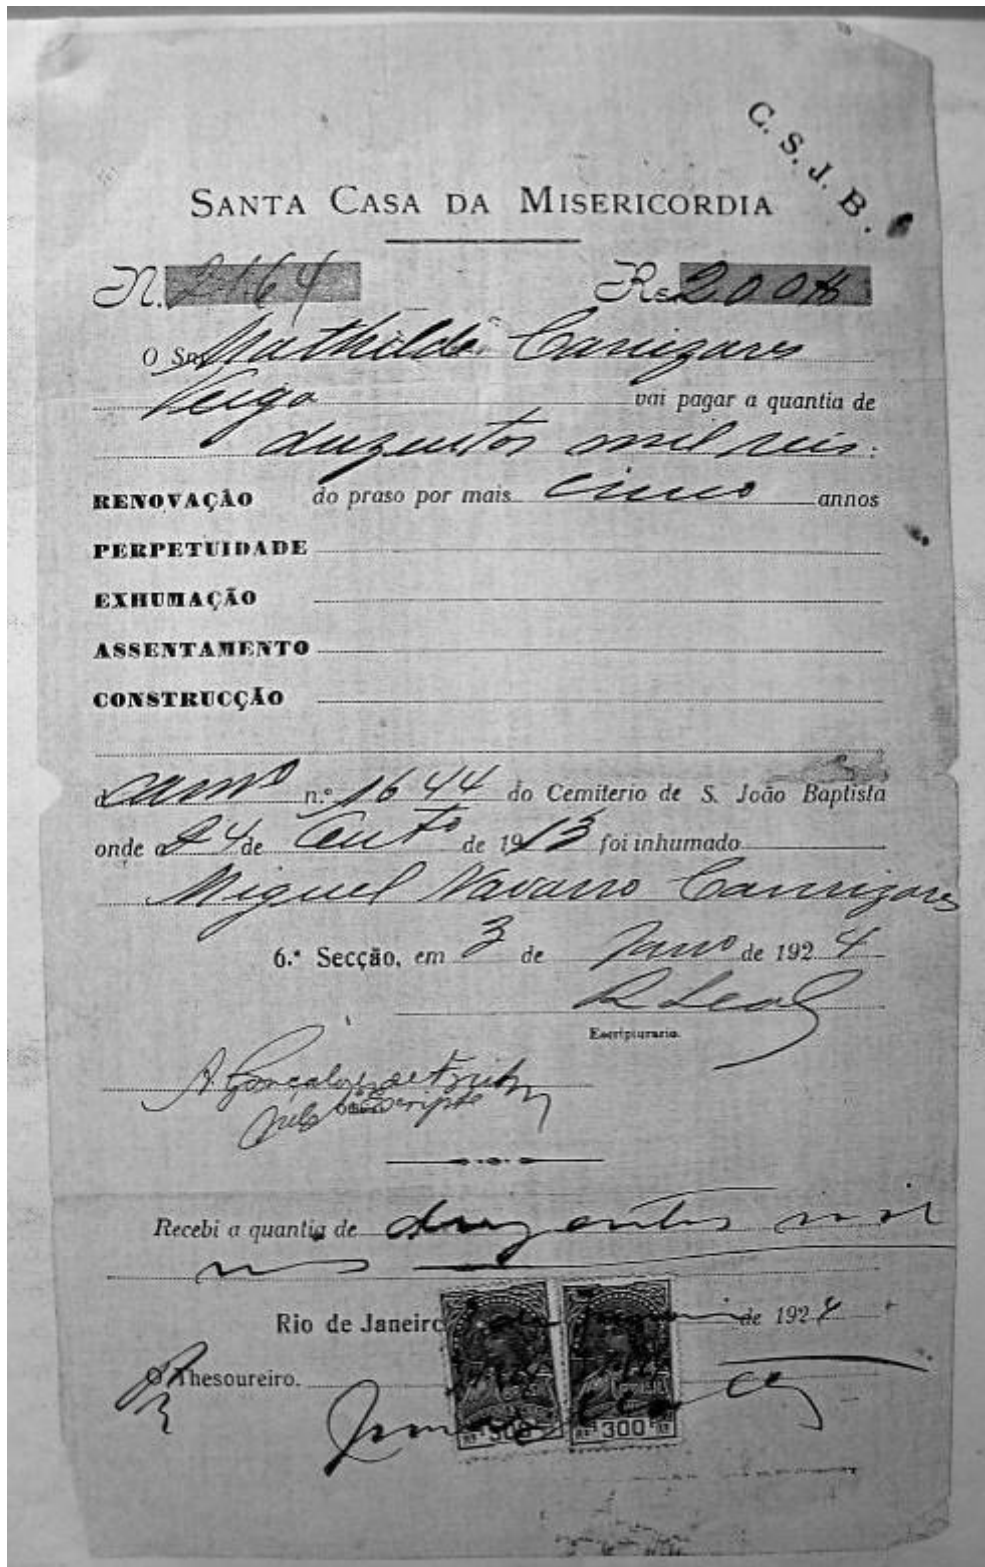 C. S. J. B.
SANTA CASA DA MISERICORDIA
N. 2164 Rs 200$
O Snr. Mathilde Canizares
Veiga vai pagar a quantia de
duzentos mil reis.
RENOVAÇÃO do praso por mais cinco annos
PERPETUIDADE
EXHUMAÇÃO
ASSENTAMENTO
CONSTRUCÇÃO
n.º 1644 do Cemiterio de S. João Baptista
onde a 24 de de 1913 foi inhumado
Miguel Navarro Cannizares
6.ª Secção, em 3 de Janro de 1924
R Leal
Escripturario.
A. Gonçalves de
pelo
Recebi a quantia de duzentos mil
reis
Rio de Janeiro de 1924
O Thesoureiro.
300 300